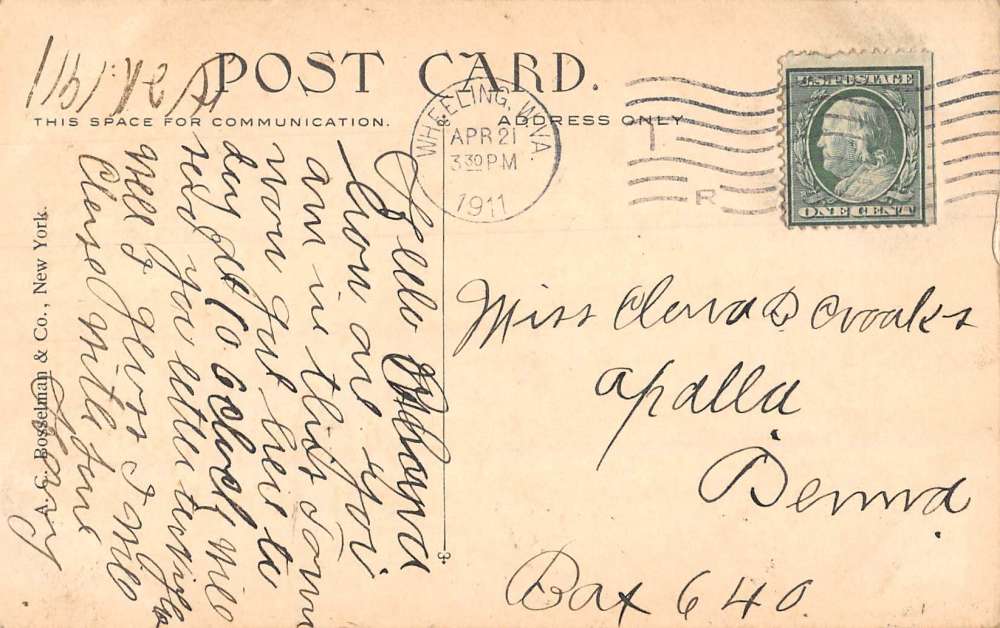 POST CARD.
THIS SPACE FOR COMMUNICATION.
ADDRESS ONLY
WHEELING, W.VA.
APR 21
3 30 PM
1911
U.S. POSTAGE
ONE CENT
R
A. C. Bosselman & Co., New York.
1911
Hello
how are you
am in this Town
now got here to
day at 10 oclock will
you letter
Well I guess I will
Close
Miss D Crooks
apallo
Box 640